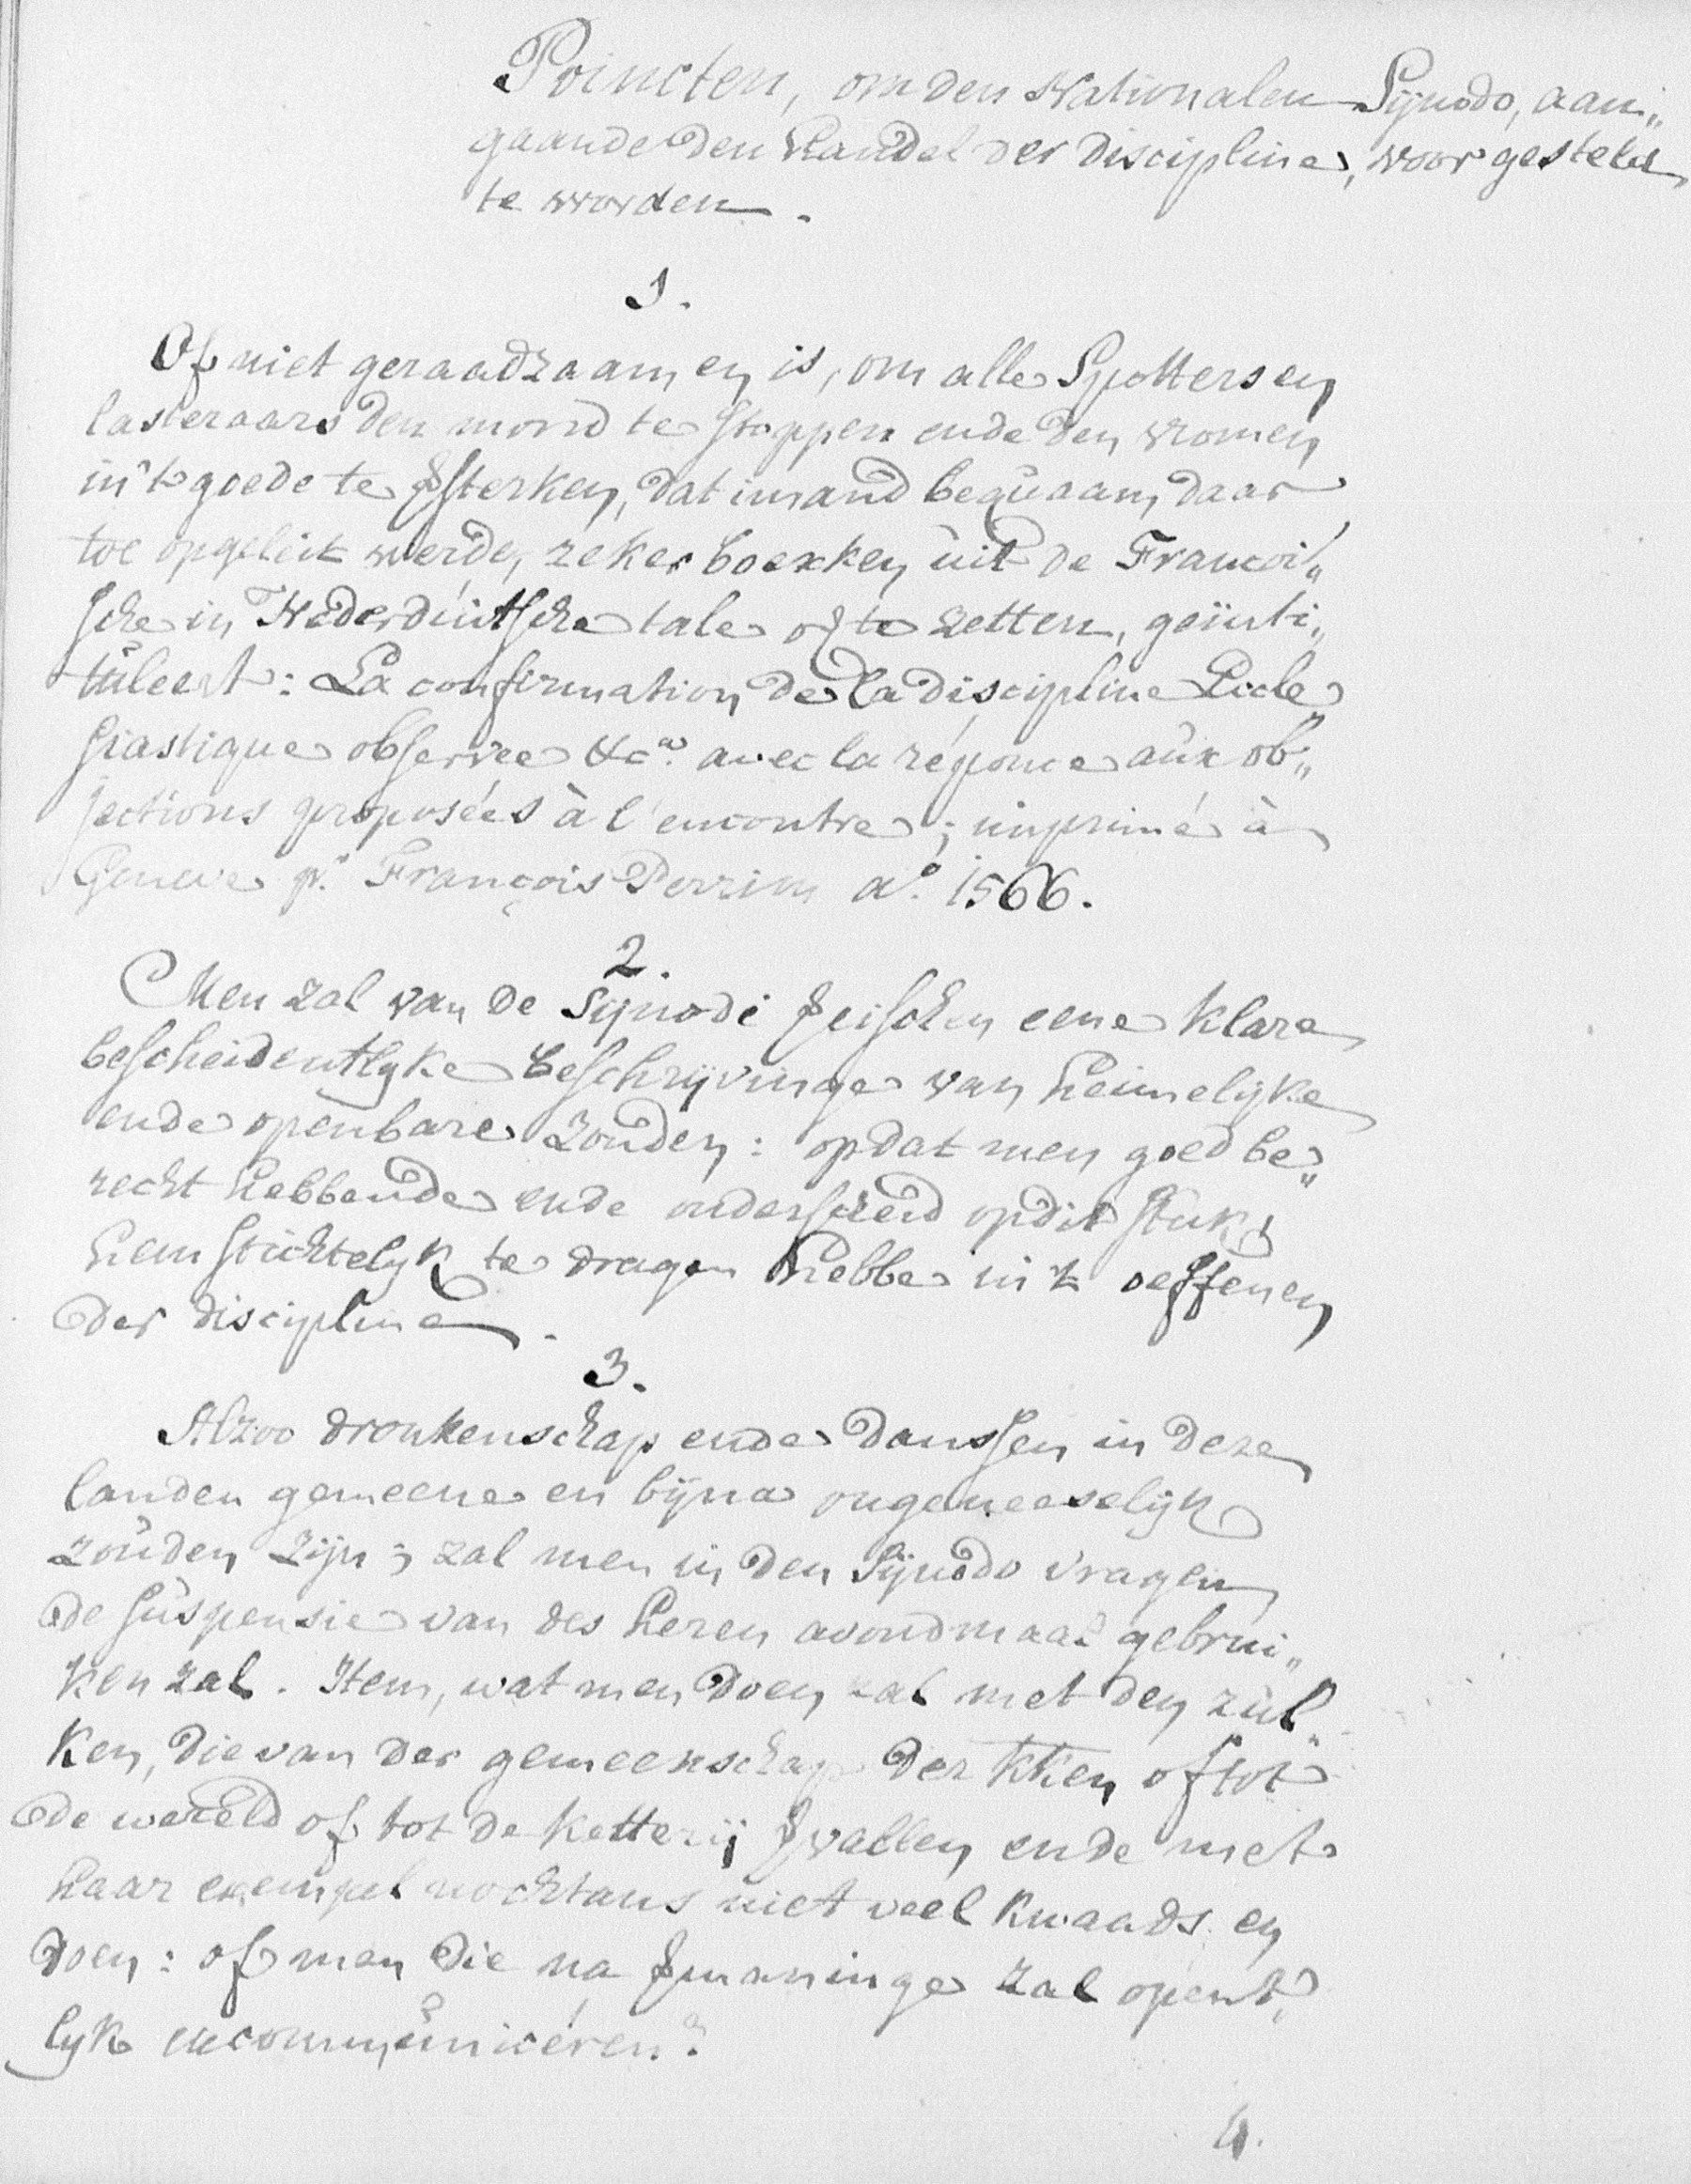 Poincten, om den Nationalen Synodo, aan„
gaande den handel der discipline, voorgesteld
te worden.
1.
Of niet geraadzaam en is, om alle Spotters en
lasteraars den mond te stoppen ende den vromen
in 't goede te ƒsterken, dat imand bequaam daar
toe opgeleit werde, zeker boexken uit de Françoi„
sche in Nederduitsche tale o㇏ te zetten, geïnti„
tuleert: La confirmation de la discipline Eccle„
siastique observee &cª. avec la réponce aux ob„
jections proposées à l'encontre; imprimé à
Geneve pr. François Perrin aº. 1566.
2.
Men zal van de Synodi ƒeischen eene klare
bescheidentlyke beschryvinge van heimelyke
ende openbare zonden: opdat men goed be„
recht hebbende ende onderscheid op dit stuk,
hem stichtelyk te dragen hebbe in 't oeffenen
der discipline.
3.
Alzoo dronkenschap ende danssen in deze
landen gemeene en bijna ongeneeselijk
zouden zijn; zal men in den Synodo vragen
de suspensie van des heren avondmaal gebrui„
ken zal. Item, wat men doen zal met den zul„
ken, die van der gemeenschap der kken of tot
de wereld of tot de ketterij ƒvallen ende met
haar exempel nochtans niet veel kwaads en
doen: of men die na ƒmaninge zal opent„
lyk excommuniceren?
4.